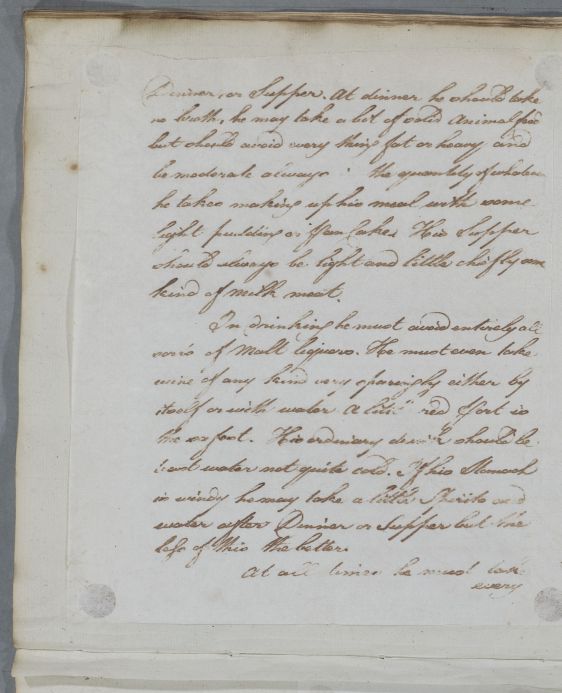 Dinner, or Supper. At dinner he should take
no broth, he may take a bit of solid Animal food
but should avoid every thing fat or heavy and
be moderate always in the quantity of whatever
he takes making up his meal with some
light pudding or Pan Cake. His Supper
should always be light and little chiefly some
kind of milk meat.
In drinking he must avoid entirely all
sorts of Malt liquors. He must even take
wine of any kind very sparingly either by
itself or with water a little red Port is
the safest. His ordinary drink should be
water not quite cold. If his Stomach
is windy he may take a little Spirits and
water after Dinner or Supper but the
less of this the better.
At all times he must take
every